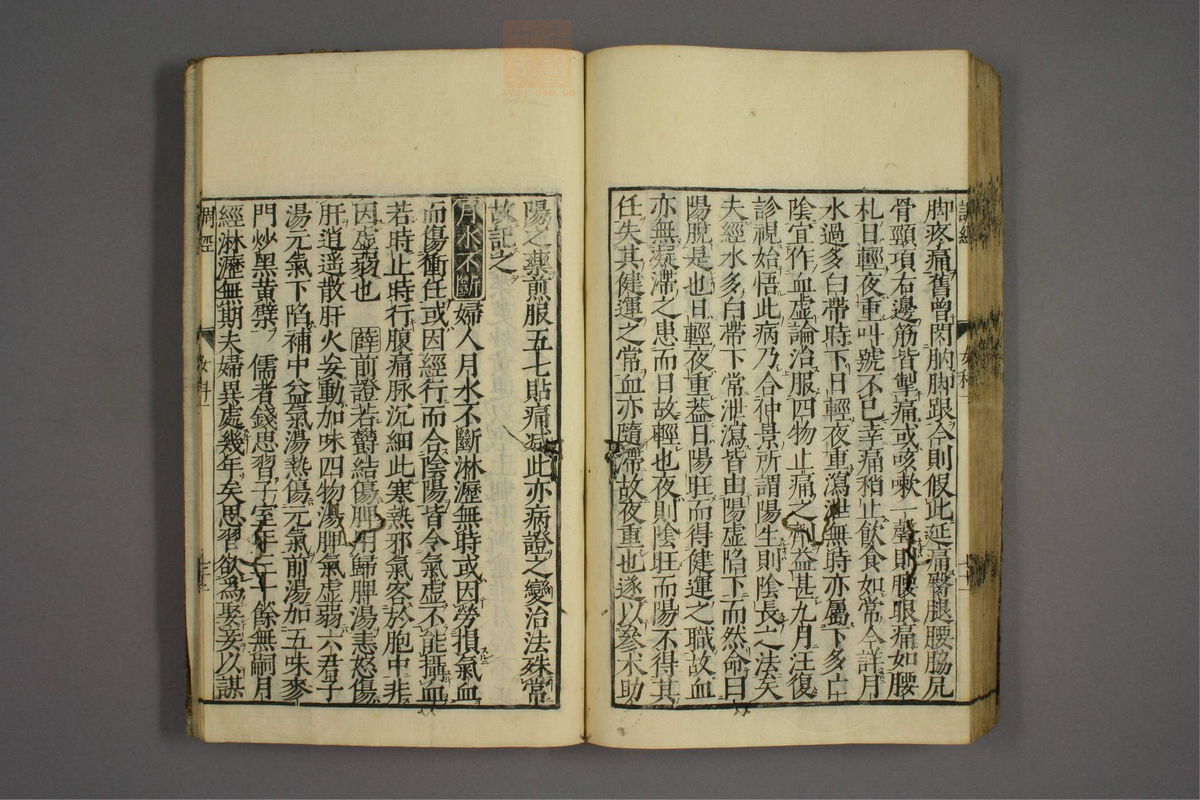 脚疼痛舊曾閃朒脚跟今則假此延痛臀腿腰脇尻
骨頸項右邊筋皆掣痛或咳嗽一聲則腰眼痛如腰
札日輕夜重叫號不已幸痛稍止飲食如常今詳月
水過多白帶時下日輕夜重瀉泄無時亦屬下多亡
陰宜作血虛論治服四物止痛之劑益甚九月汪復
診視始悟此病乃合仲景所謂陽生則陰長之法矣
夫經水多白帶下常泄瀉皆由陽虛陷下而然命曰
陽脫是也日輕夜重蓋日陽旺而得健運之職故血
亦無凝滯之患而日故輕也夜則陰旺而陽不得其
任失其健運之常血亦隨滯故夜重也遂以參术助
陽之藥煎服五七貼痛減此亦病證之變治法殊常
故記之
月水不斷 婦人月水不斷淋瀝無時或因勞損氣血
而傷衝任或因經行而合陰陽皆令氣虛不能攝血
若時止時行腹痛脉沉細此寒熱邪氣客於胞中非
因虛弱也 薛前證若鬱結傷脾用歸脾湯恚怒傷
肝逍遥散肝火妄動加味四物湯脾氣虛弱六君子
湯元氣下陷補中益氣湯熱傷元氣前湯加五味麥
門炒黑黃蘗 儒者錢思習子室年三十餘無嗣月
經淋瀝無期夫婦異處幾年矣思習欲爲娶妾以謀
調經
女科一